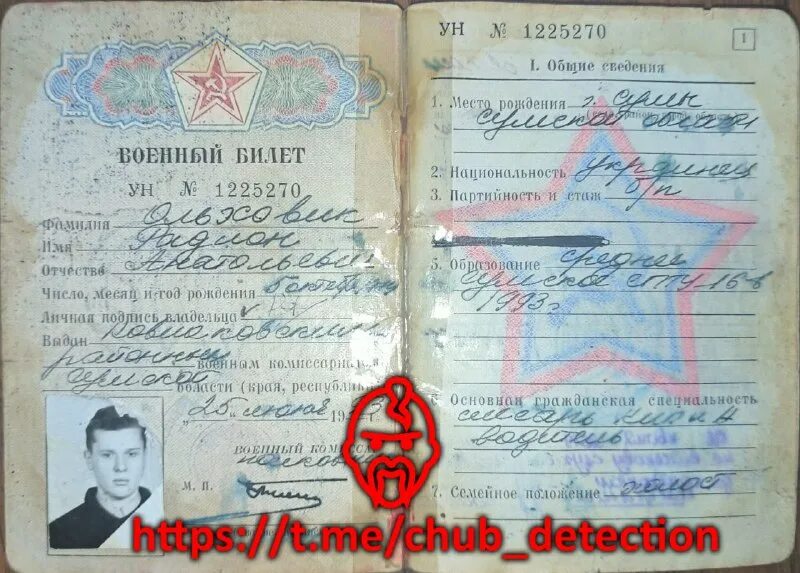 ВОЕННЫЙ БИЛЕТ
УН № 1225270
Фамилия Ольховик
Имя Радион
Отчество Анатольевич
Число, месяц и год рождения 6 октября
Личная подпись владельца
Выдан Ковпаковским
районным военным комиссариа
Сумской области (края, республики
„25" июня 19
ВОЕННЫЙ КОМИССА
М. П.
УН № 1225270
1
I. Общие сведения
1. Место рождения г. Сумы
Сумской области
2. Национальность украинец
3. Партийность и стаж б/п
5. Образование среднее
Сумское СПТУ-16-в
1993г
6. Основная гражданская специальность
слесарь КИП и А
водитель
7. Семейное положение холост
https://t.me/chub_detection